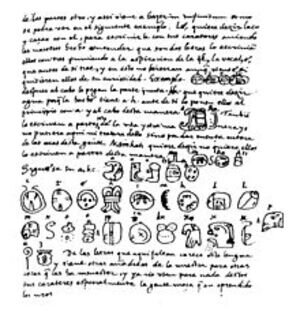 de las partes otro, y assi viene a hazer in infinitum como
se podra ver en el siguiente exemplo. Lé, quiere dezir laço
y caçar con el, para escrivirle con sus carateres
nosotros hecho entender que son dos letras lo escrivian
ellos con tres puniendo a la aspiracion de la l, la vocal e,
que antes de si trae, y en esto no hierran aunque
quisieren ellos de su curiosidad. Exemplo
despues al cabo le pegan la parte junta. Ha que quiere dezir
agua porque la hache tiene a. h. ante de si lo ponen ellos al
principio con a. y al cabo desta manera Tambie
lo escriven a partes de la una y otra ma nera yo
no pusiera aqui ni tratara dello sino por dar cuenta entera
de las cosas desta gente. quiere dezir no quiero ellos
lo escriven a partes desta manera
Siguese su a. b. c.
De las letras que aqui faltan carece esta lengua
y tiene otras añadidas de la nuestra para otras
cosas que las ha menester, y ya no usan para nada destos
sus carateres especialmente la gente moça que an aprendido
los nros